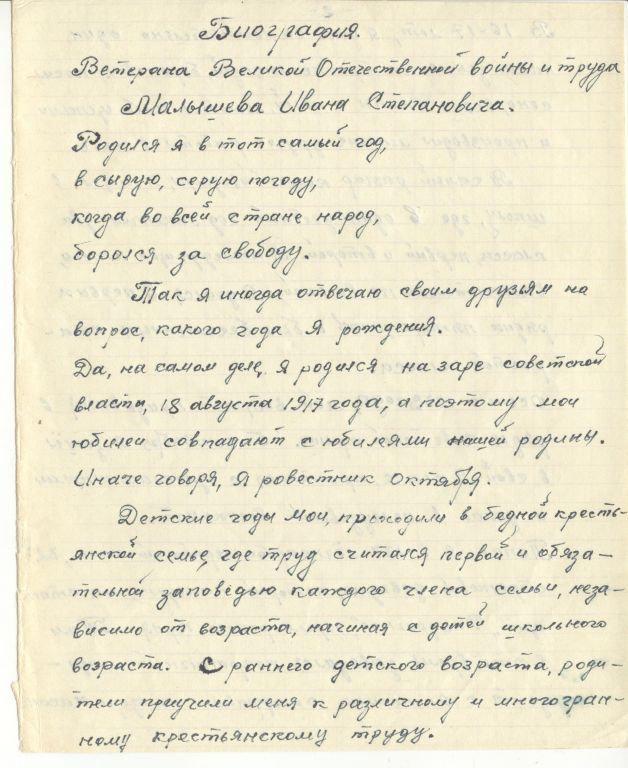 Биография.
Ветерана Великой Отечественной войны и труда
Малышева Ивана Степановича.
Родился я в тот самый год,
в сырую, серую погоду,
когда во всей стране народ,
боролся за свободу.
Так я иногда отвечаю своим друзьям на
вопрос, какого года я рождения.
Да, на самом деле, я родился на заре советской
власти, 18 августа 1917 года, а поэтому мои
юбилеи совпадают с юбилеями нашей родины.
Иначе говоря, я ровестник октября.
Детские годы мои, проходили в бедной кресть-
янской семье, где труд считался первой и обяза-
тельной заповедью каждого члена семьи, неза-
висимо от возраста, начиная с детей школьного
возраста. С раннего детского возраста, роди-
тели приучили меня к различному и многогран-
ному крестьянскому труду.